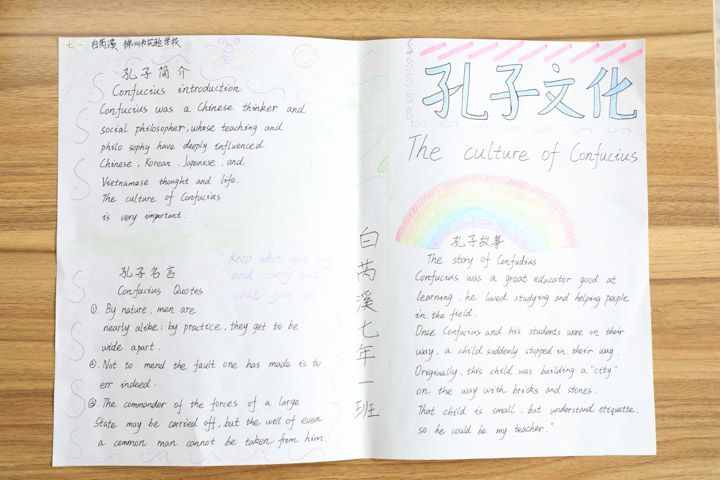 七一 白芮溪 锦州市实验学校
孔子简介
Confucius introduction
Confucius was a Chinese thinker and
social philosopher, whose teaching and
philo sophy have deeply influenced
Chinese, Korean, Japanese, and
Vietnamese thought and life.
The culture of Confucius
is very important.
孔子名言
Confucius Quotes
Keep what you say
and carry out
what you
① By nature, men are
nearly alike; by practice, they get to be
wide apart.
②. Not to mend the fault one has made is to
err indeed.
③ The commander of the forces of a large
State may be carried off, but the will of even
a common man cannot be taken from him.
白芮溪七年一班
孔子文化
The culture of Confucius
孔子故事
The story of Confudius
Confucius was a great educator good at
learning, he loved studying and helping people
in the field.
Once Confucius and his students were on their
way, a child suddenly stopped in their way.
Originally, this child was building a "city"
on the way with bricks and stones.
That child is small, but understand etiquette,
so he could be my teacher."